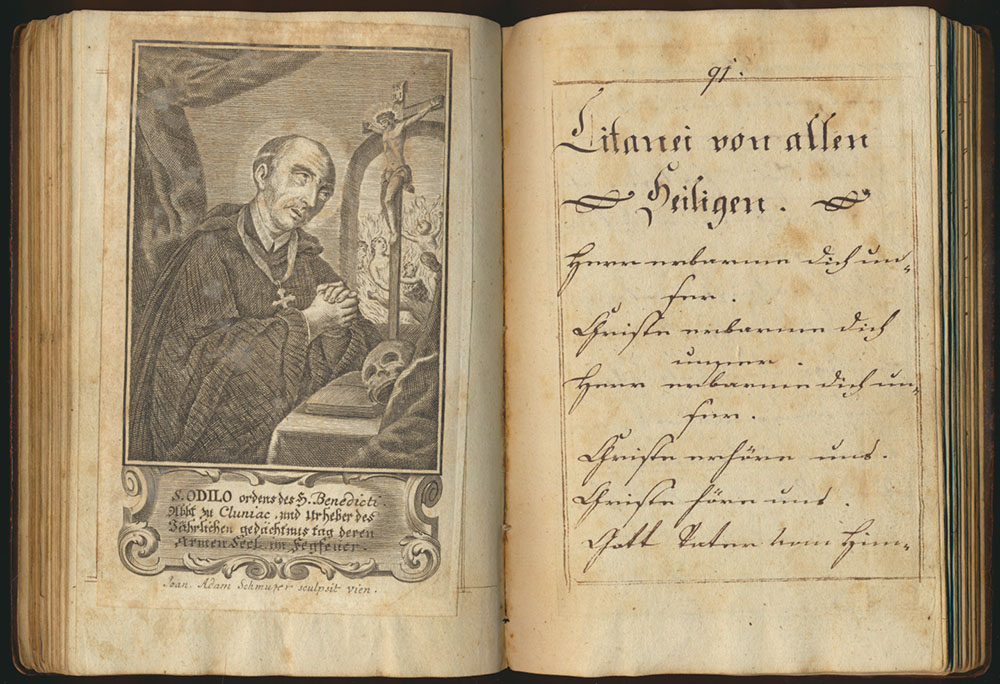 S. ODILO ordens des H. Benedicti
Abbt zu Cluniac, und Urheber des
Jährlichen gedächtnus tag deren
Armen Seel. im Fegfeuer.
Joan. Adam Schmuzer sculpsit vien.
91.
Litanei von allen
Heiligen.
Herr erbarme dich un=
ser.
Christe erbarme dich
unser.
Herr erbarme dich un=
ser.
Christe erhöre uns.
Christe höre uns
Gott Vater vom Him=